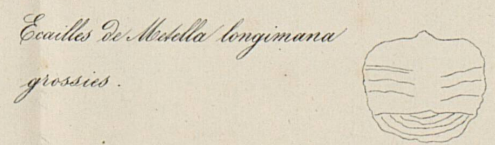 Ecailles de Metella longimana
grossies.